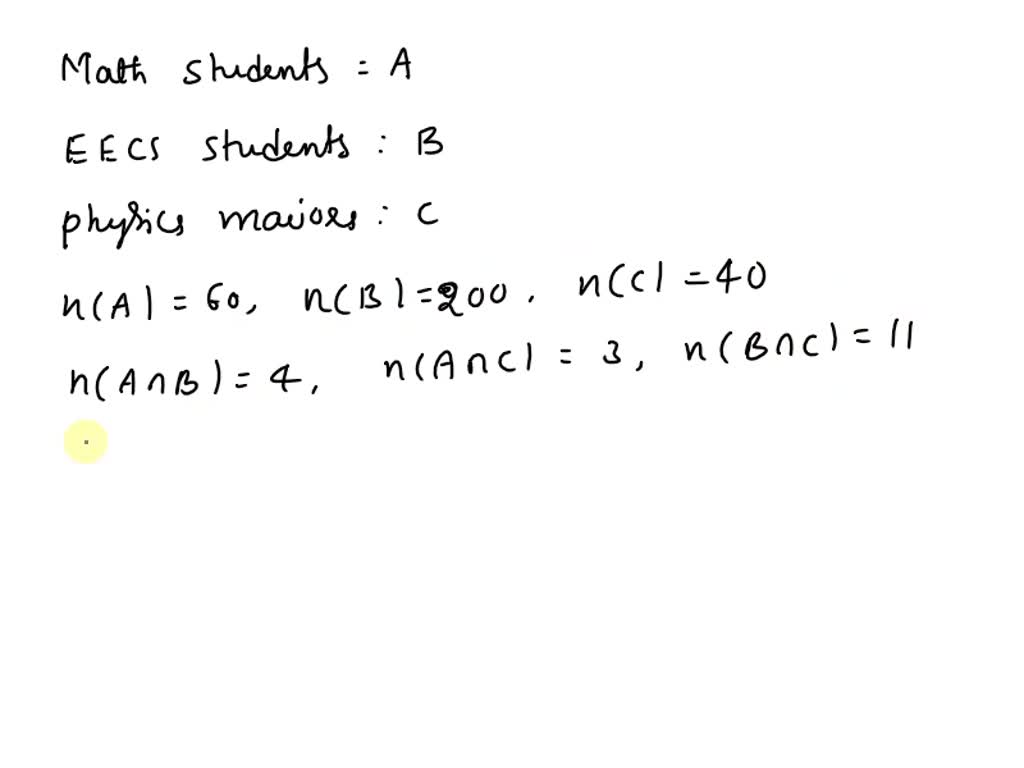 Math students = A
EECS students : B
physics maiors : C
n(A) = 60, n(B) = 200. n(C) = 40
n(A∩B) = 4, n(A∩C) = 3, n(B∩C) = 11